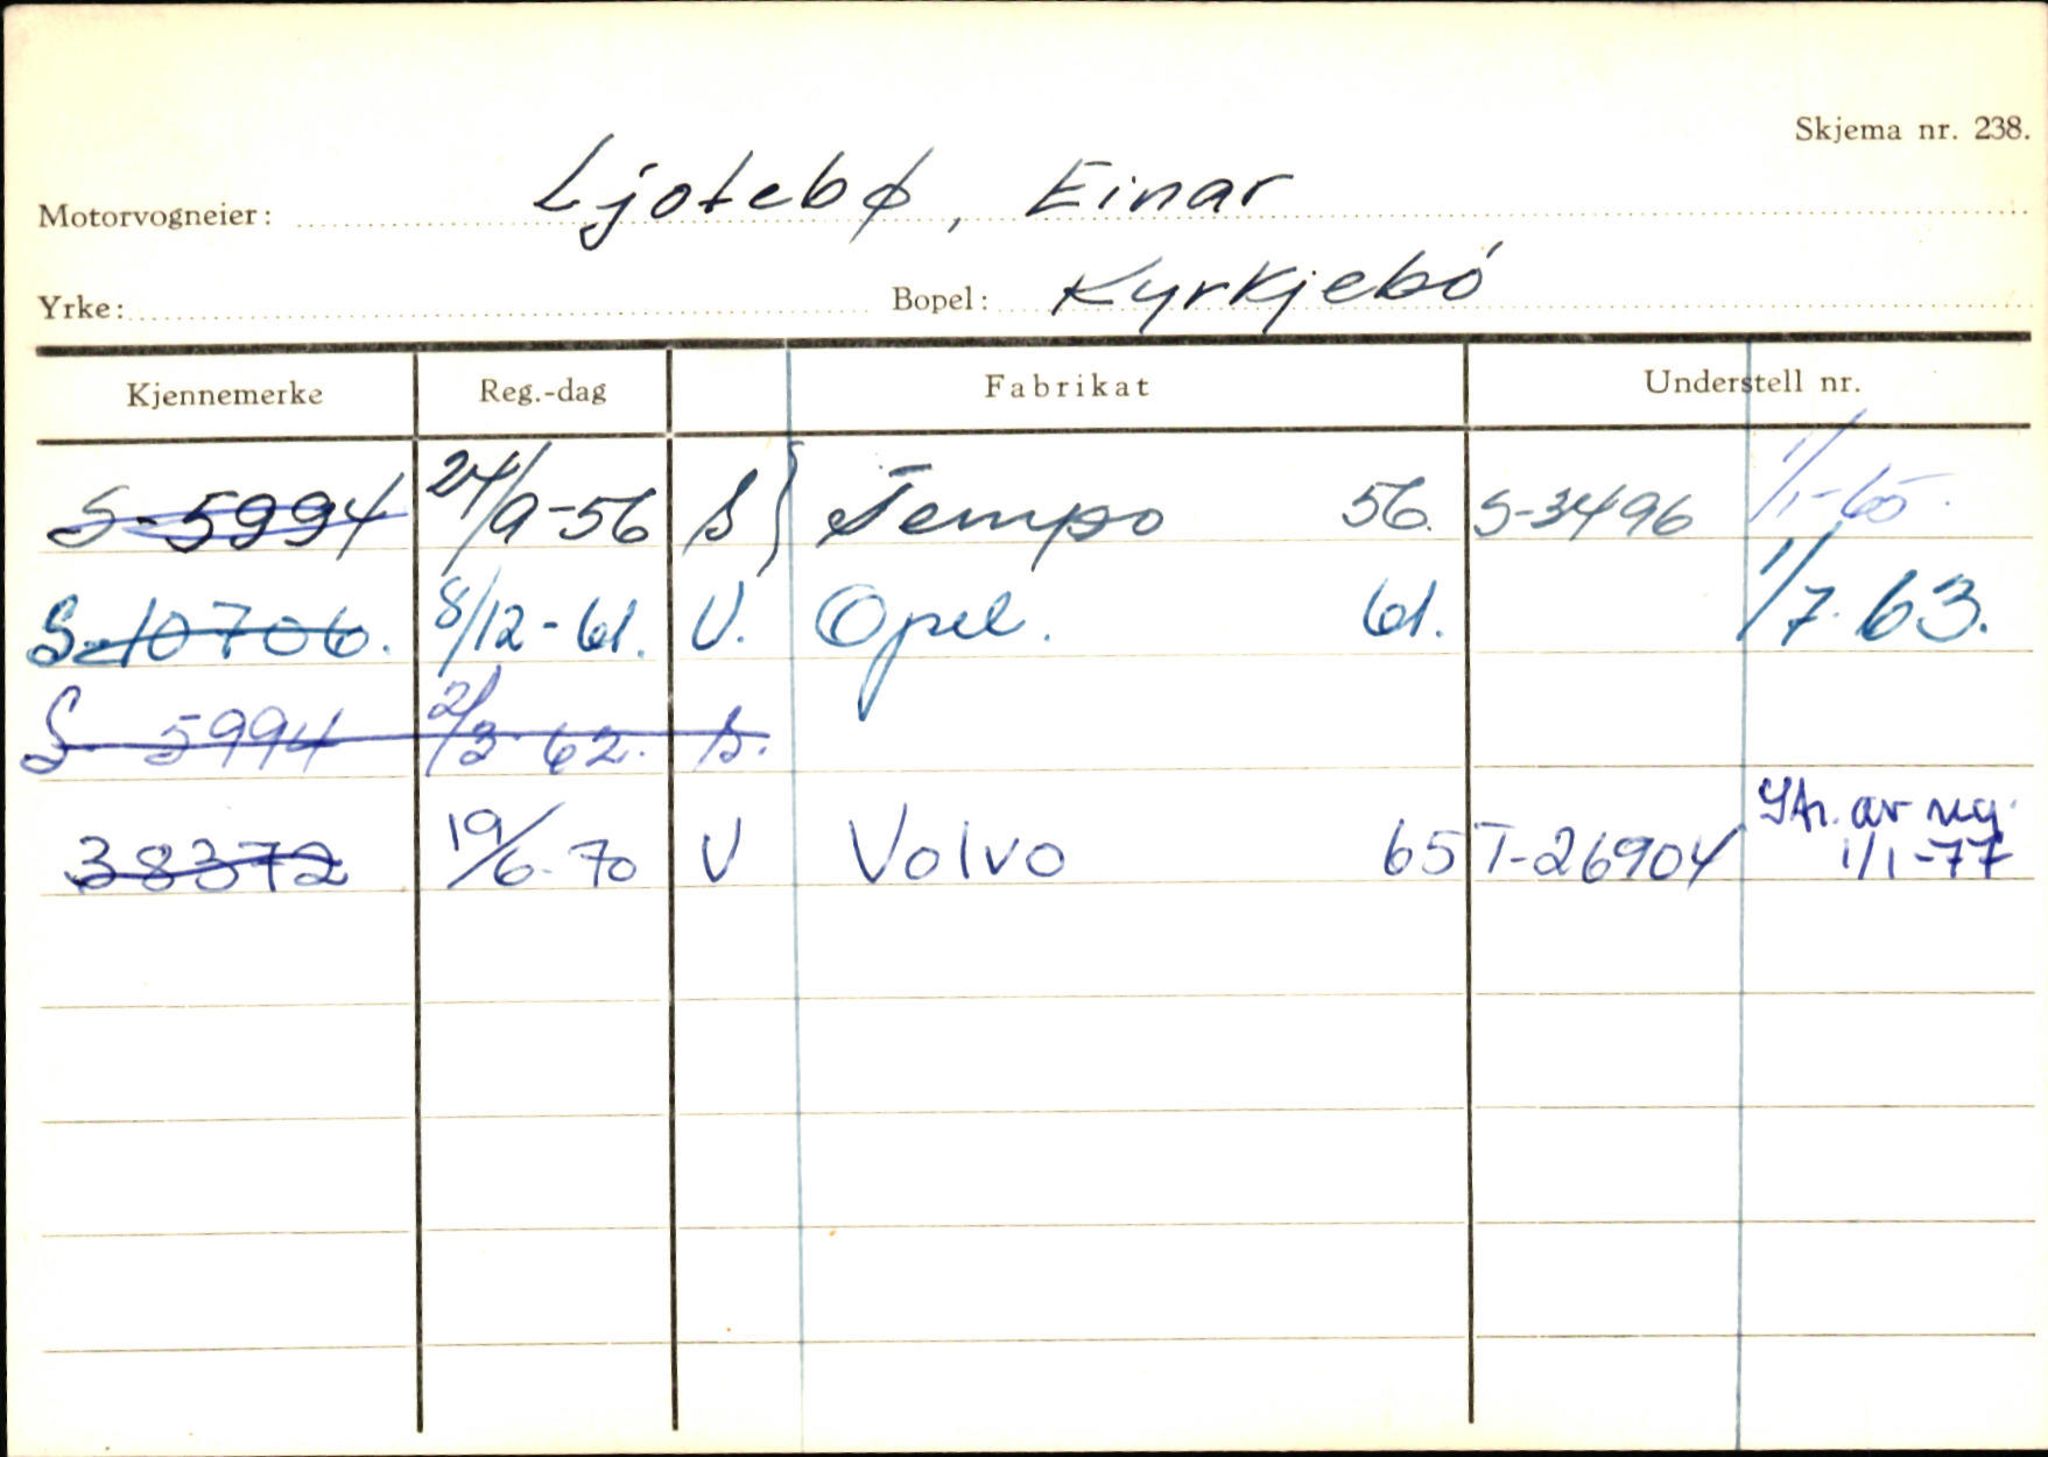 Skjema nr. 238.
Motorvogneier: Ljotebø, Einar
Yrke: Bopel: Kyrkjebó
Kjennemerke Reg.-dag Fabrikat Understell nr.
S-5994 24/9-56 S } Tempo 56. S-3496 1/1-65.
S-10706. 8/12-61. V. Opel. 61. 1/7.63.
S 5994 2/3-62. S.
38372 19/6-70 V Volvo 65 T-26904 Str. av reg. 1/1-77